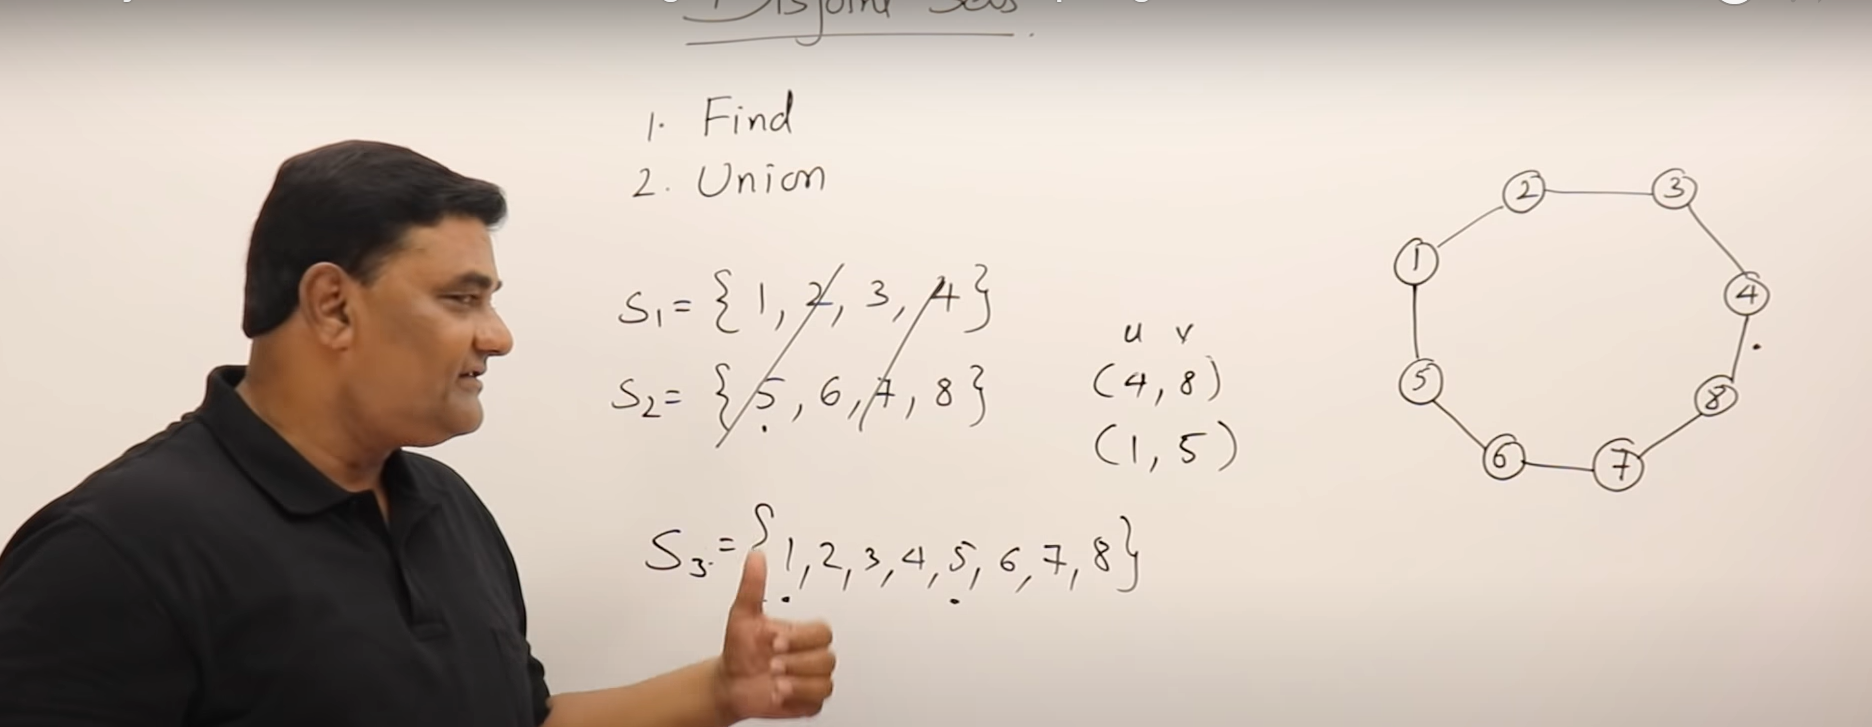 Disjoint Sets
1. Find
2. Union
S₁ = {1, 2, 3, 4}
S₂ = {5, 6, 7, 8}
u v
(4, 8)
(1, 5)
S₃ = {1, 2, 3, 4, 5, 6, 7, 8}
2
3
1
4
5
8
6
7